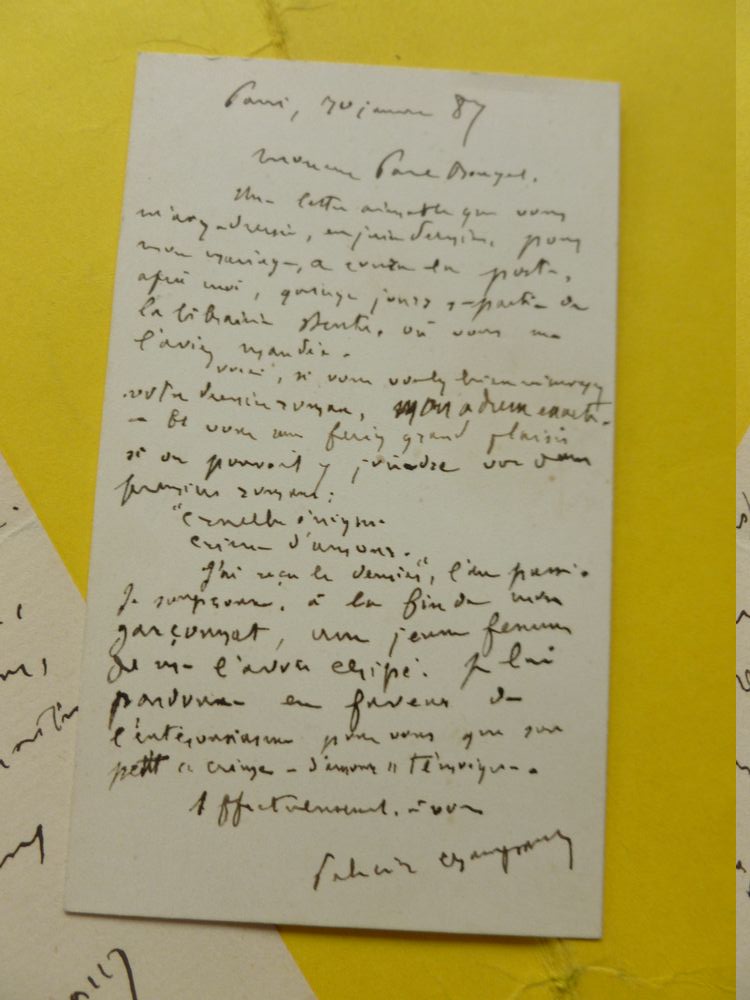 Paris, 30 janvier 87
Monsieur Paul Bourget.
Une lettre aimable que vous
m'avez adressée, en juin dernier, pour
mon mariage, a couru la poste,
après moi, quinze jours repartie de
la librairie Dentu, où vous me
l'aviez mandée.
Voici, si vous voulez bien m'envoyer
votre dernier roman, mon adresse exacte.
— Et vous me feriez grand plaisir
si on pouvait y joindre vos deux
premiers romans:
"Cruelle énigme
Crime d'amour."
J'ai reçu le dernier, l'an passé.
Je soupçonne, à la fin de mon
garçonnat, une jeune femme
de me l'avoir chipé. Je lui
pardonne en faveur de
l'enthousiasme pour vous que son
petit « crime — d'amour » témoigne.
Affectueusement, à vous
Félicien Champsaur